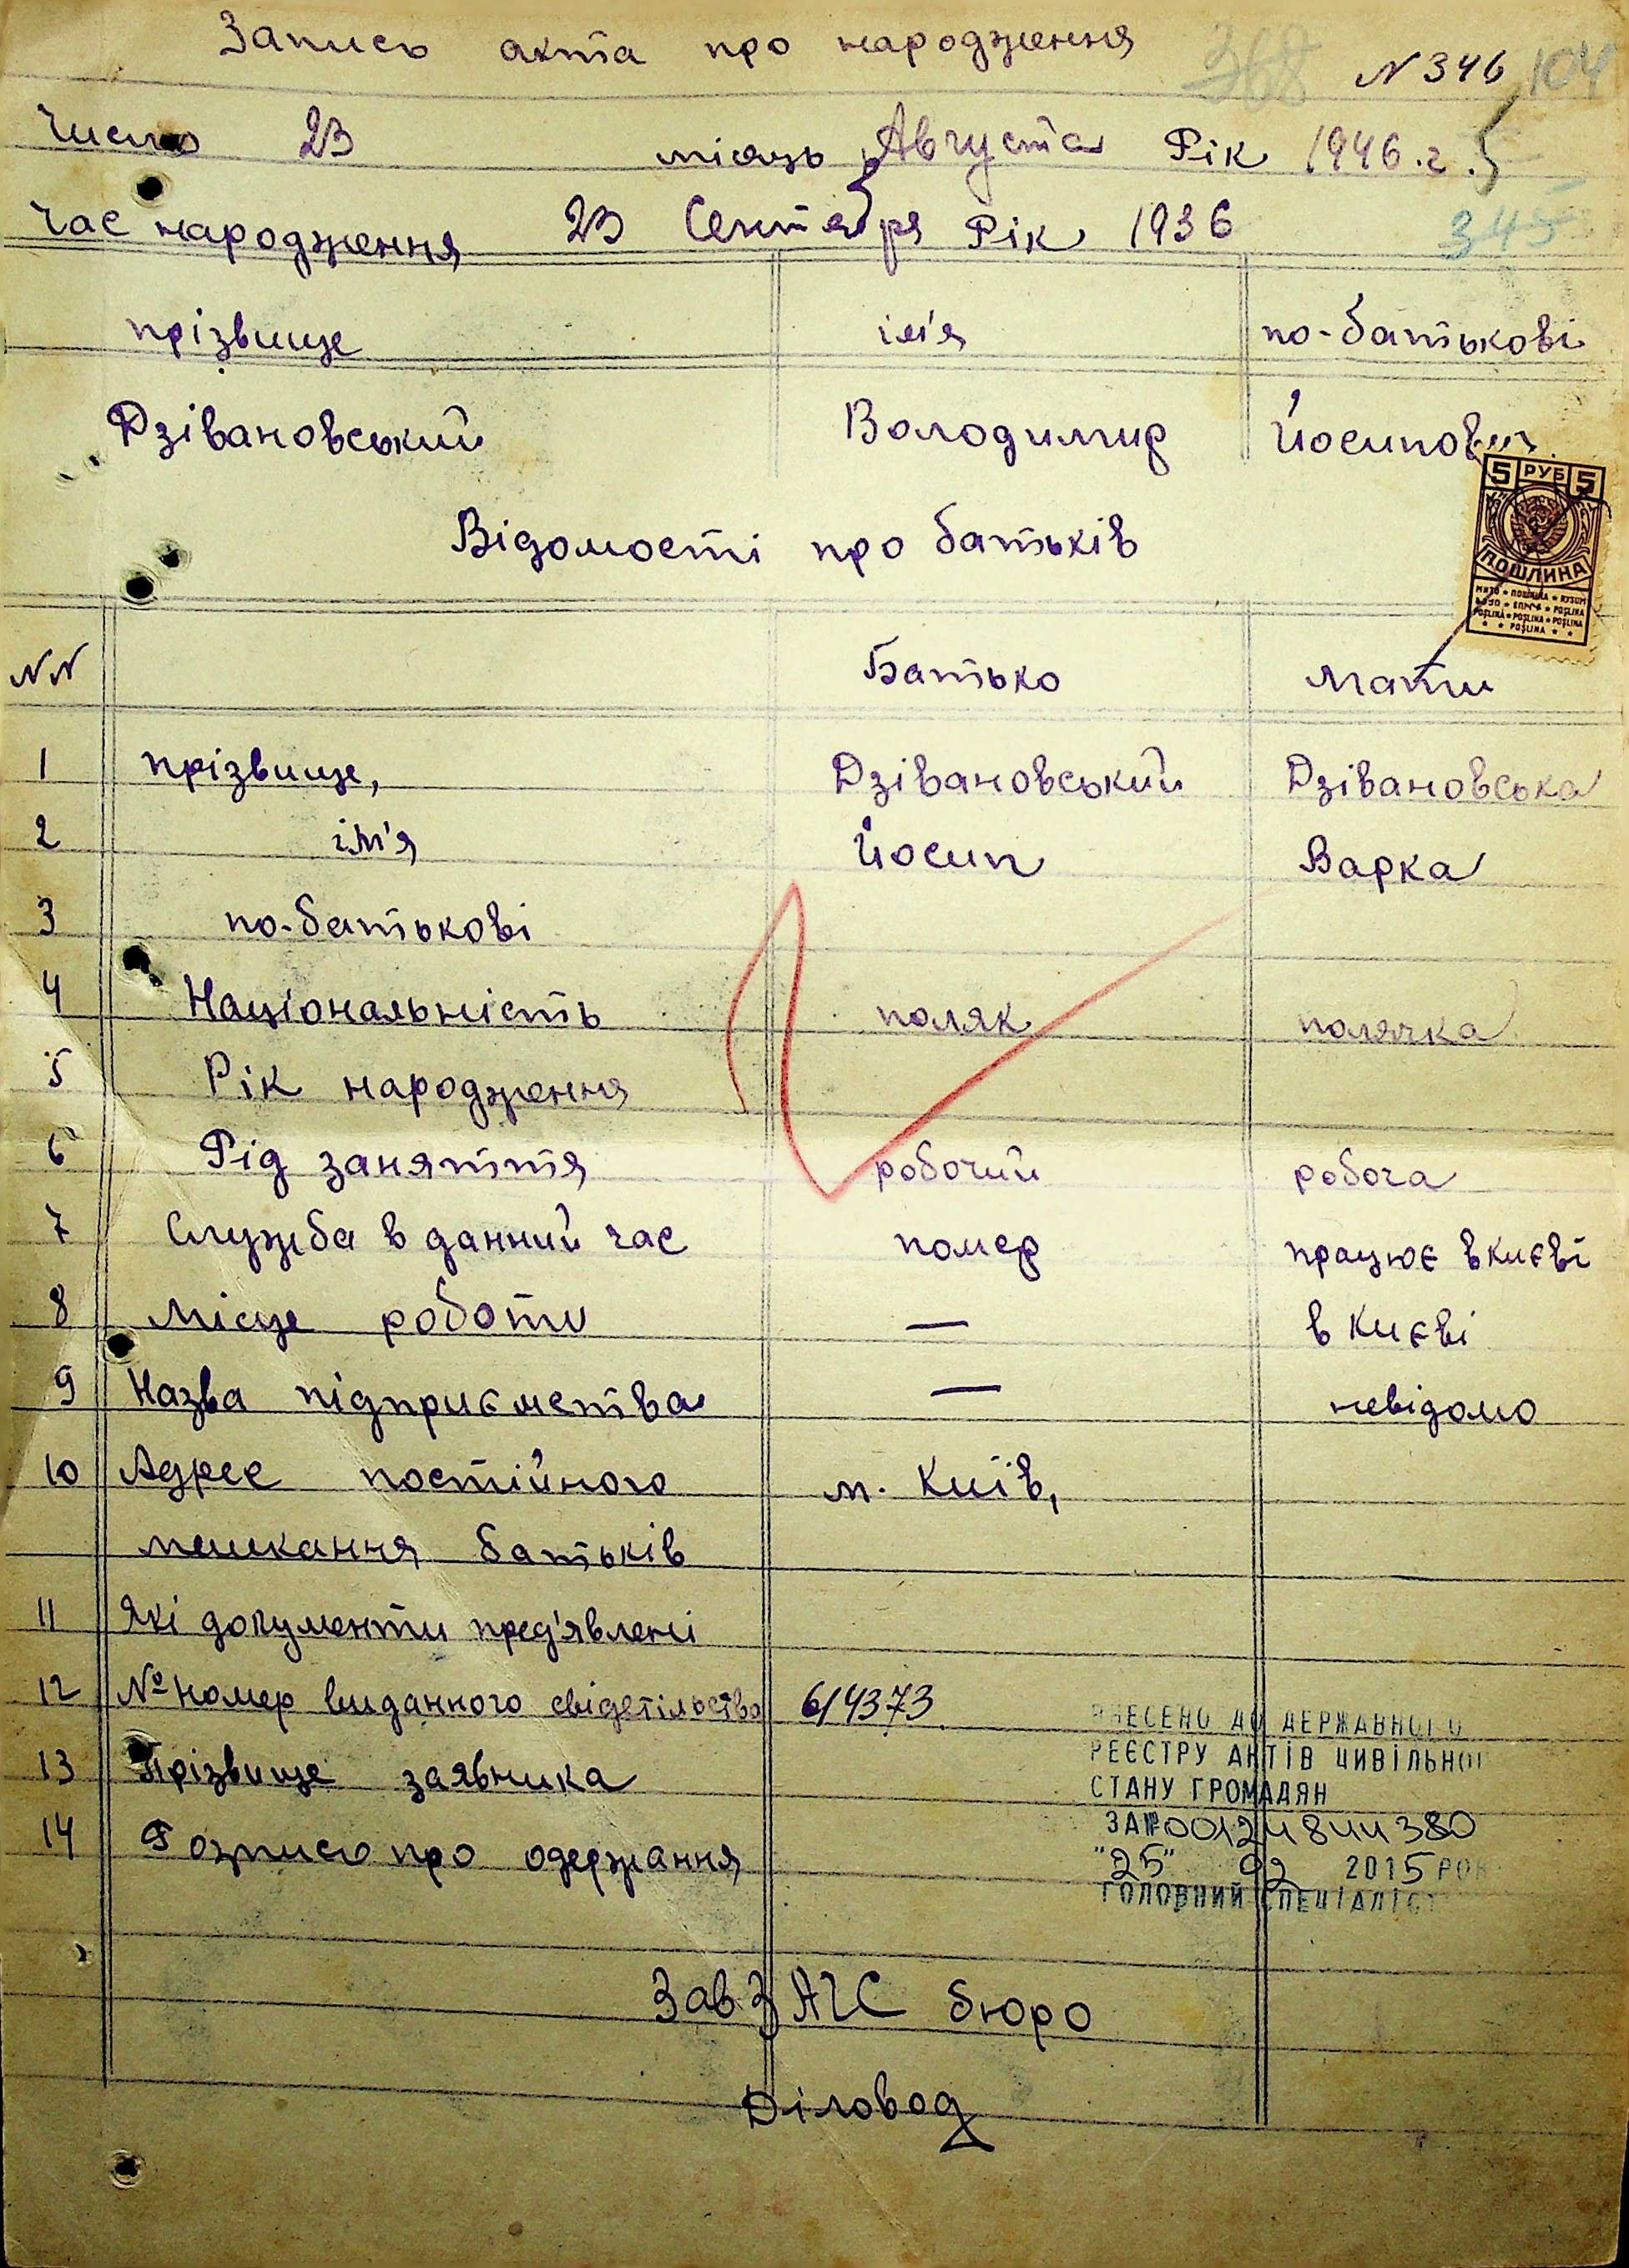 Запись акта про народження
368 N 346 104
Число 23 місяць Августа Рік 1946.г.
345
Час народження 23 Сентября Рік 1936
прізвище ім'я по-батькові
Дзівановський Володимир Йосипович
5 РУБ 5
ПОШЛИНА
Відомості про батьків
NN Батько Мати
1 прізвище, Дзівановський Дзівановська
2 ім'я Йосип Варка
3 по-батькові
4 Національність поляк полячка
5 Рік народження
6 Рід заняття робочий робоча
7 Служба в данний час помер працює в києві
8 Місце роботи — в Києві
9 Назва підприємства — невідомо
10 Адрес постійного м. Київ,
мешкання батьків
11 Які документи пред'явлені
12 № номер виданного свідетільства 614373.
13 Прізвище заявника
14 Розпись про одержання
ВНЕСЕНО ДО ДЕРЖАВНОГО
РЕЄСТРУ АКТІВ ЦИВІЛЬНОЇ
СТАНУ ГРОМАДЯН
ЗА № 00124844380
"25" 02 2015 РОК
ГОЛОВНИЙ СПЕЦІАЛІСТ
Зав ЗАГС бюро
Діловод